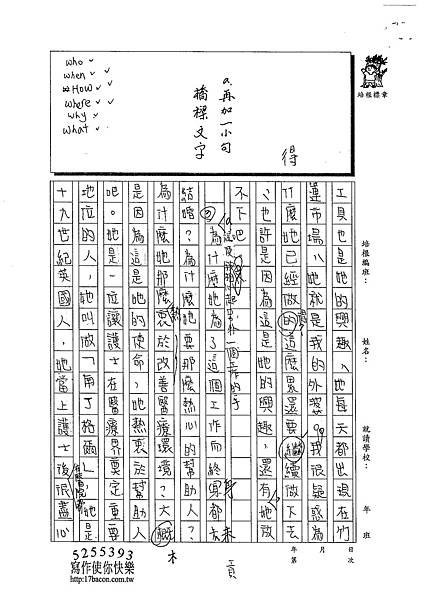 who ✓
when ✓
HOW ✓
where ✓
why ✓
what ✓
a.再加一小句
橋樑文字
得
培根標章
培根編班：
姓名：
就讀學校：
年 班
工具也是她的興趣，她每天都出現在竹
蓮市場，她就是我的外婆。我很疑惑為
什麼她已經做的這麼累還要繼續做下去
，也許是因為這是她的興趣，還有她放
不下吧！
為什麼她為了這個工作而終身都未
結婚？為什麼她要那麼熱心的幫助人？
為什麼她那麼熱衷於改善醫療環境？大概
是因為這是她的使命，她熱衷於幫助人
吧。她是一位護士在醫療界奠定重要
地位的人，她叫做「南丁格爾」，她是
十九世紀英國人，她當上護士後很盡心
5255393
寫作使你快樂
http://17bacon.com.tw
年 月 日
第 頁 次